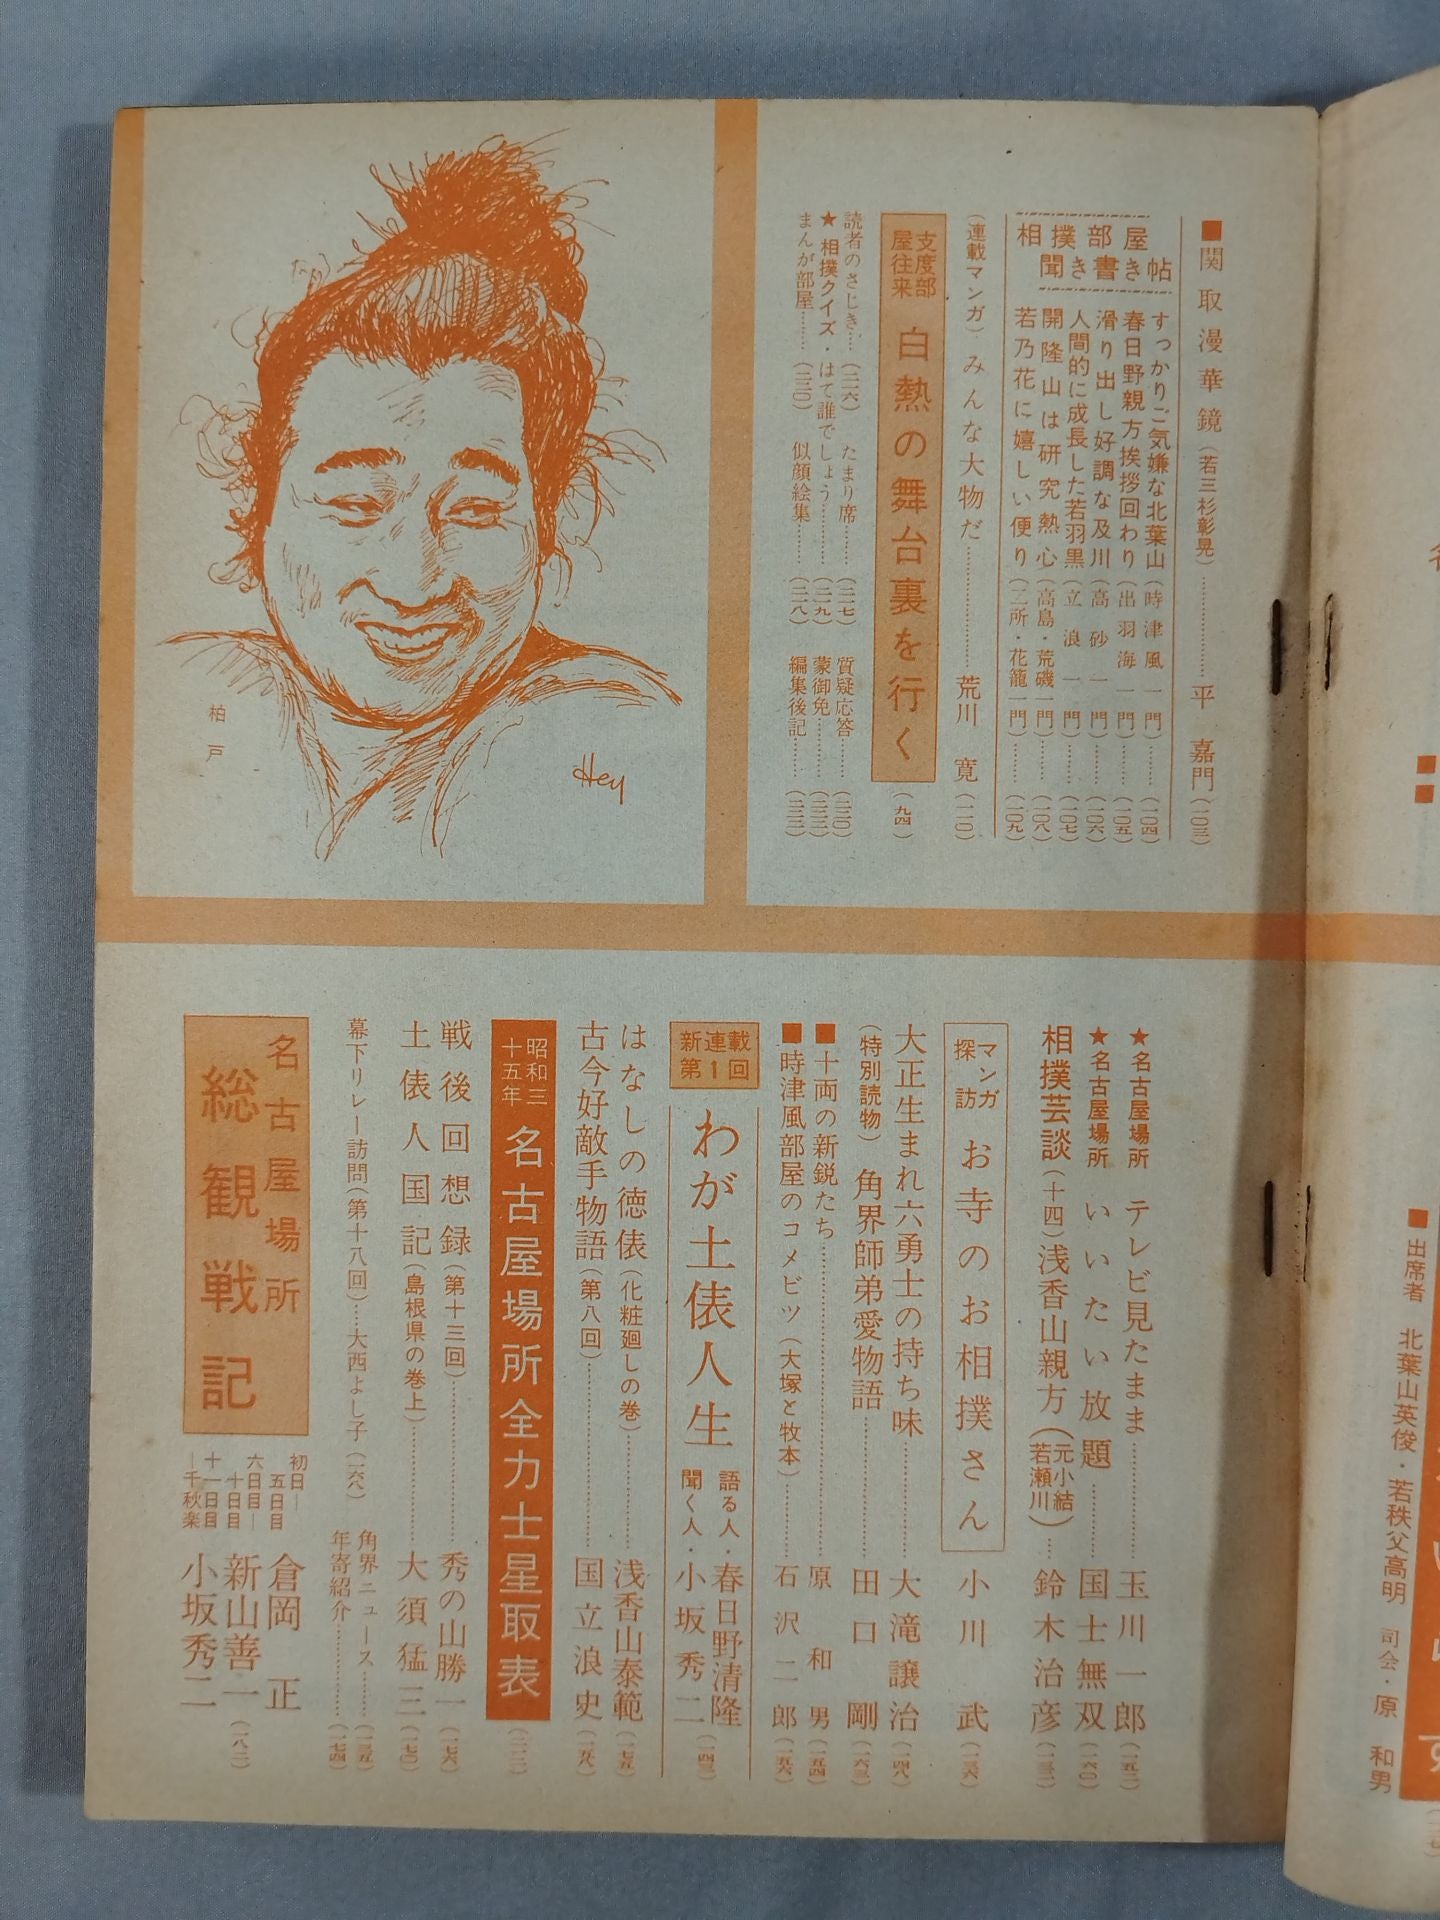 ■関取漫華鏡(若三杉彰晃)…………平 嘉門(一〇三)
相撲部屋
聞き書き帖
すっかりご気嫌な北葉山(時津風一門)……(一〇四)
春日野親方挨拶回わり(出羽海一門)……(一〇五)
滑り出し好調な及川(高砂一門)……(一〇六)
人間的に成長した若羽黒(立浪一門)……(一〇七)
開隆山は研究熱心(高島・荒磯一門)……(一〇八)
若乃花に嬉しい便り(二所・花籠一門)……(一〇九)
(連載マンガ)みんな大物だ…………荒川 寛(一一〇)
支度部
屋往来
白熱の舞台裏を行く(九四)
読者のさじき…(二二六) たまり席……(二二七) 質疑応答……(二三〇)
★相撲クイズ・はて誰でしょう……(二一九) 蒙御免………(二二二)
まんが部屋……(二二〇) 似顔絵集……(二一八) 編集後記……(二三二)
柏戸
Hey
★名古屋場所 テレビ見たまま…………玉川一郎(一五二)
★名古屋場所 いいたい放題……国士無双(一六〇)
相撲芸談(十四)浅香山親方(元小結若瀬川)…鈴木治彦(一三二)
マンガ
探訪
お寺のお相撲さん 小川 武(一三六)
大正生まれ六勇士の持ち味…………大滝譲治(一四八)
(特別読物) 角界師弟愛物語…………田口 剛(一六三)
■十両の新鋭たち…………原 和男(一五四)
■時津風部屋のコメビツ(大塚と牧本)……石沢二郎(一五六)
新連載
第1回
わが土俵人生
語る人・春日野清隆
聞く人・小坂秀二(一四三)
はなしの徳俵(化粧廻しの巻)…………浅香山泰範(一七五)
古今好敵手物語(第八回)…………国立浪史(一五八)
昭和三
十五年
名古屋場所全力士星取表(二一二)
戦後回想録(第十三回)…………秀の山勝一(一七六)
土俵人国記(島根県の巻上)…………大須猛三(一七〇)
幕下リレー訪問(第十八回)……大西よし子(一六八)
角界ニュース……(一三五)
年寄紹介…………(一七四)
名古屋場所
総観戦記
初日―五日目 倉岡 正
六日目―十日目 新山善一(一八二)
十一日目―千秋楽 小坂秀二
■出席者 北葉山英俊・若秩父高明 司会・原 和男